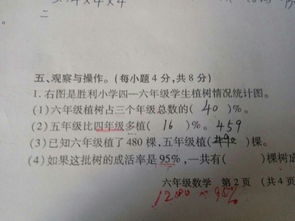 二
五、观察与操作。(每小题4分,共8分)
1. 右图是胜利小学四—六年级学生植树情况统计图。
(1)六年级植树占三个年级总数的( 40 )%。
(2)五年级比四年级多植( 16 )%。 459
(3)已知六年级植了480棵,五年级植( )棵。
(4)如果这批树的成活率是95%,一共有( )棵树成
六年级数学 第2页 (共4页
1200×95%